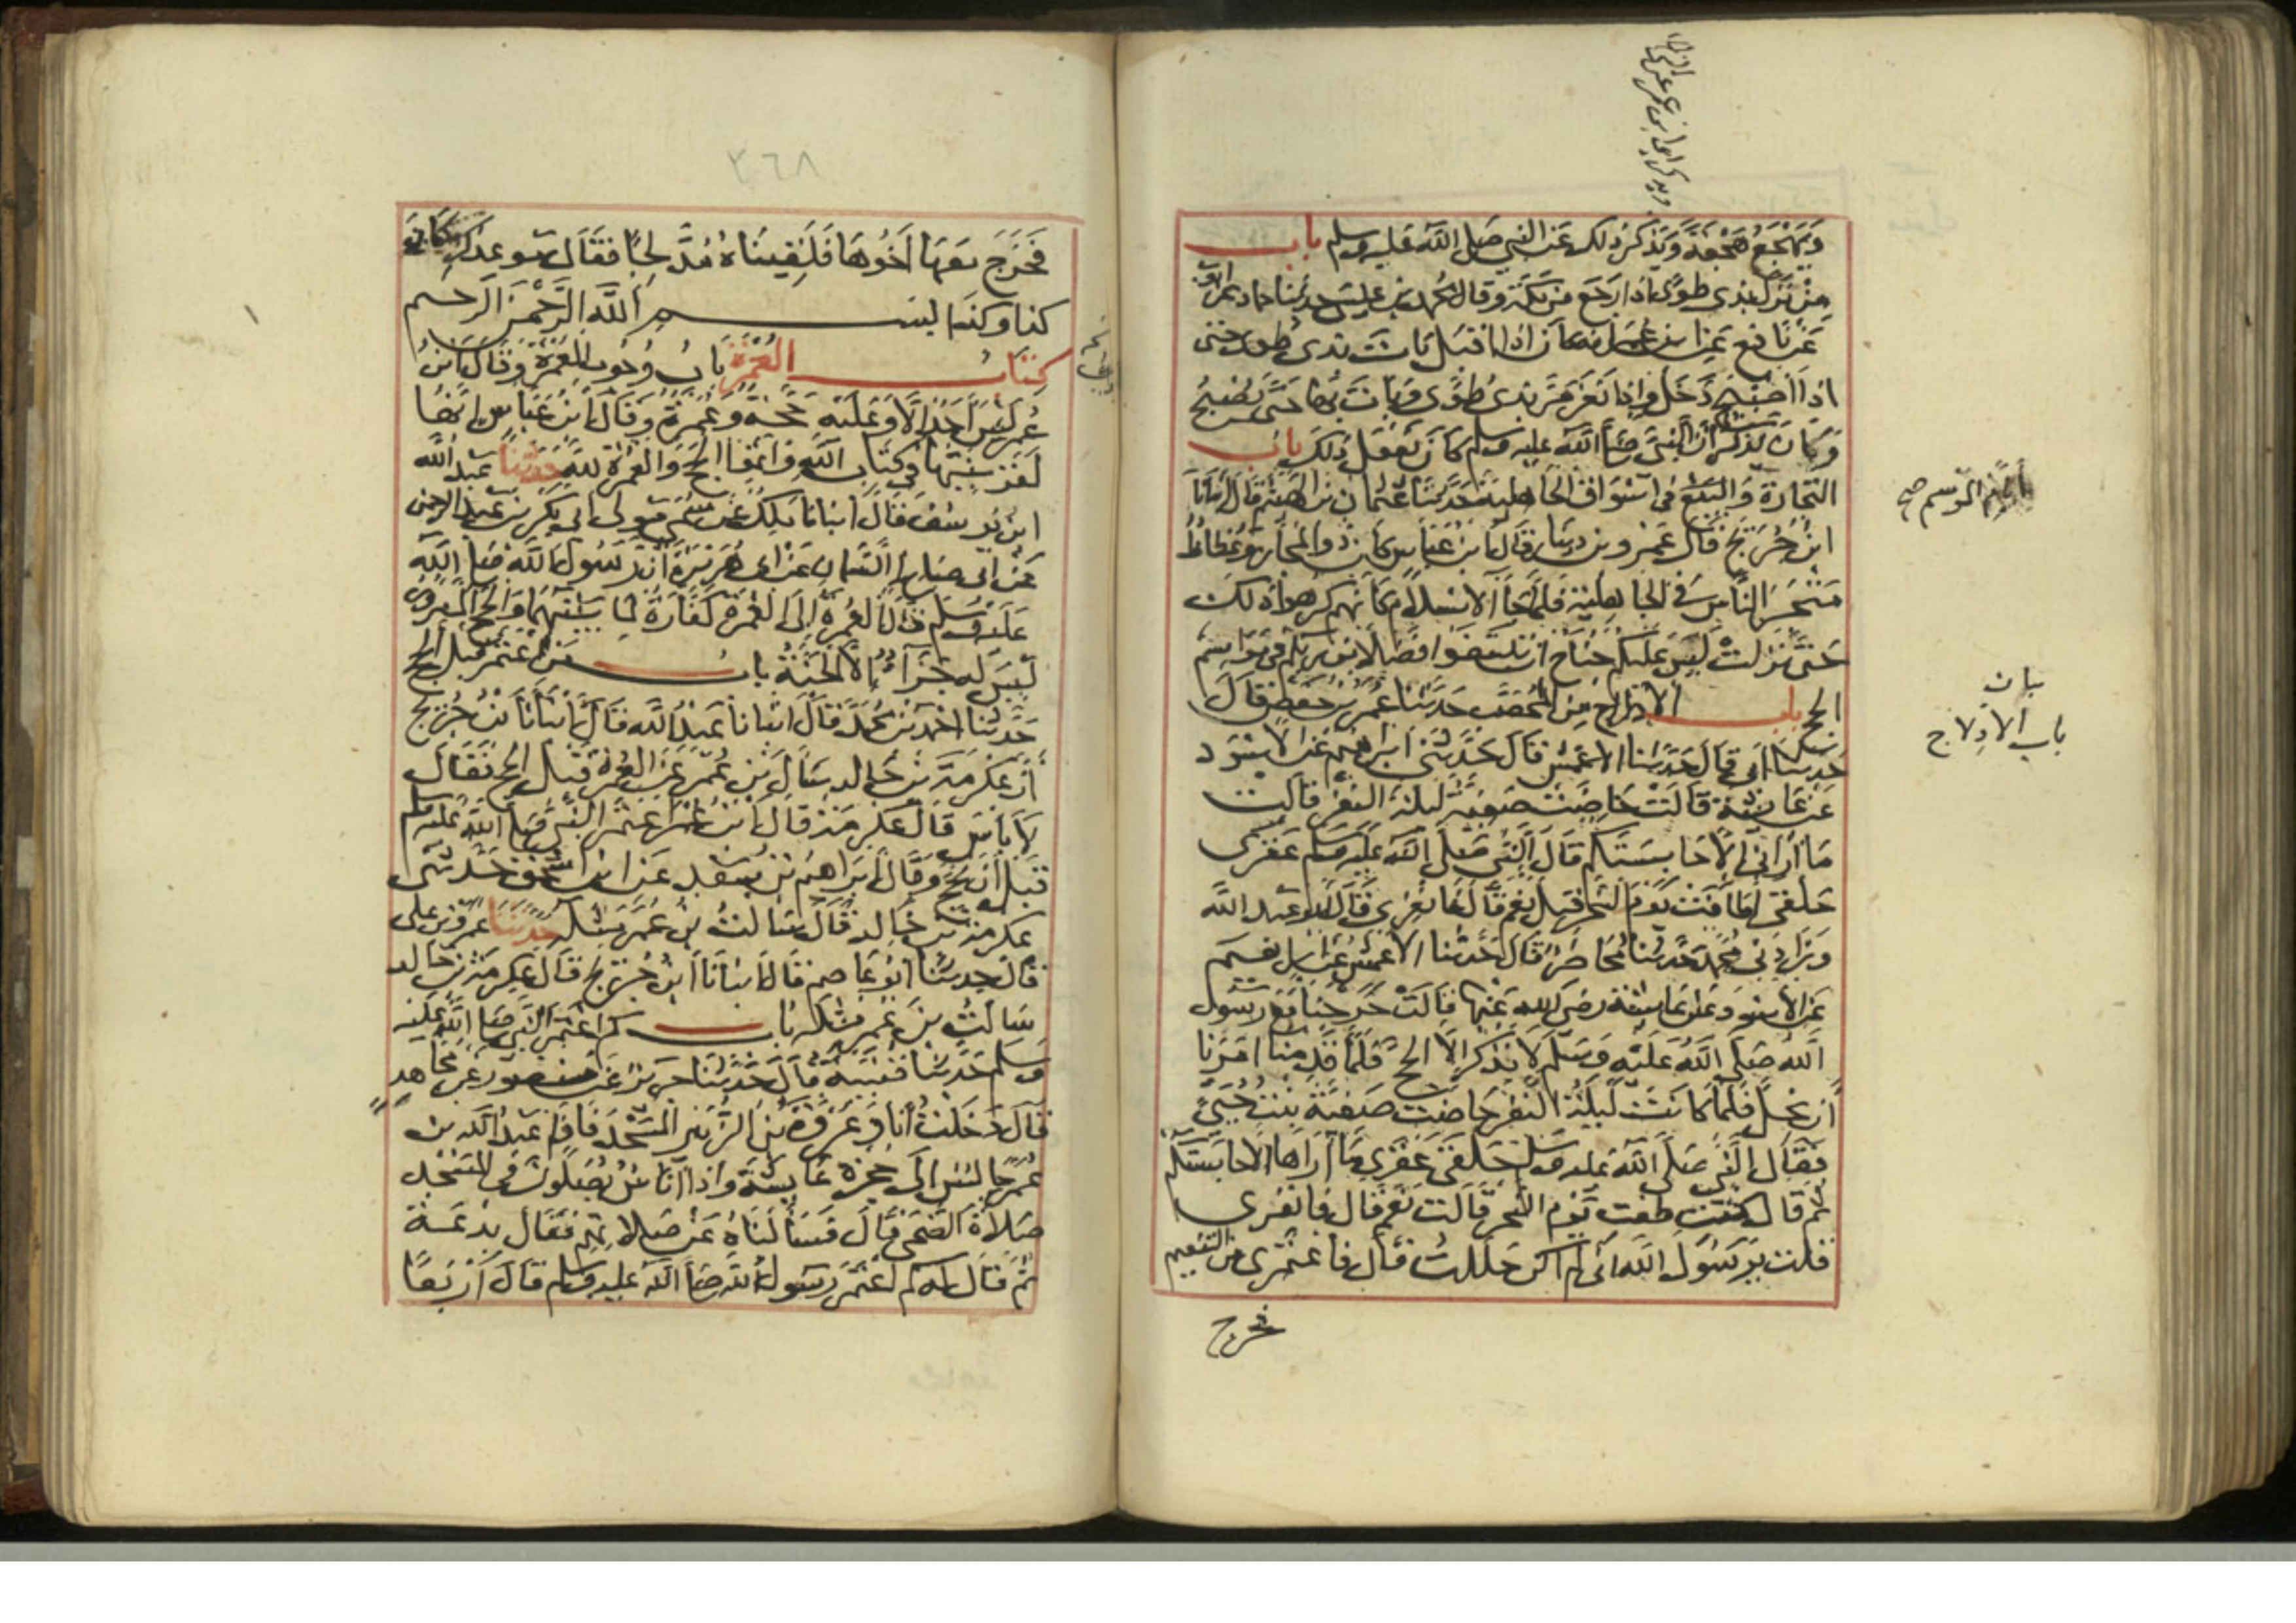 ويهجع هجعة ويذكر ذلك عن النبي صلى الله عليه وسلم باب
من نزل بذي طوى اذا رجع من مكة وقال محمد بن عيسى حدثنا حماد عن ايوب
عن نافع عن ابن عمر انه كان اذا اقبل بات بذي طوى حتى
اذا اصبح دخل واذا نفر مر بذي طوى وبات بها حتى يصبح
وكان يذكر ان النبي صلى الله عليه وسلم كان يفعل ذلك باب
التجارة والبيع في اسواق الجاهلية حدثنا عثمان بن الهيثم قال انبانا
ابن جريج قال عمرو بن دينار قال ابن عباس كان ذو المجاز وعكاظ
متجر الناس في الجاهلية فلما جا الاسلام كانهم كرهوا ذلك
حتى نزلت ليس عليكم جناح ان تبتغوا فضلا من ربكم في مواسم
الحج باب الادلاج من المحصب حدثنا عمر بن حفص قال
حدثنا ابي قال حدثنا الاعمش قال حدثني ابراهيم عن الاسود
عن عائشة قالت حاضت صفية ليلة النفر فقالت
ما اراني الا حابستكم قال النبي صلى الله عليه وسلم عقرى
حلقى اطافت يوم النحر قيل نعم قال فانفري قال ابو عبد الله
وزادني محمد حدثنا محاضر قال حدثنا الاعمش عن ابراهيم
عن الاسود عن عائشة رضي الله عنها قالت خرجنا مع رسول
الله صلى الله عليه وسلم لا نذكر الا الحج فلما قدمنا امرنا
ان نحل فلما كانت ليلة النفر حاضت صفية بنت حيي
فقال النبي صلى الله عليه وسلم حلقى عقرى ما اراها الا حابستكم
ثم قال كنت طفت يوم النحر قالت نعم قال فانفري
قلت يرسول الله اني لم اكن حللت قال فاعتمري من التنعيم
فخرج
باب
باب الادلاج
٢٦٨
فخرج معها اخوها فلقيناه مدلجا فقال موعدك مكان
كذا وكذا بسم الله الرحمن الرحيم
كتاب العمرة باب وجوب العمرة وقال ابن
عمر ليس احد الا وعليه حجة وعمرة وقال ابن عباس انها
لقرينتها في كتاب الله واتموا الحج والعمرة لله حدثنا عبد الله
ابن يوسف قال انبانا ملك عن سمي مولى ابي بكر بن عبد الرحمن
عن ابي صالح السمان عن ابي هريرة ان رسول الله صلى الله
عليه وسلم قال العمرة الى العمرة كفارة لما بينهما والحج المبرور
ليس له جزآء الا الجنة باب من اعتمر قبل الحج
حدثنا احمد بن محمد قال انبانا عبد الله قال انبانا ابن جريج
ان عكرمة بن خالد سال بن عمر عن العمرة قبل الحج فقال
لا باس قال عكرمة قال ابن عمر اعتمر النبي صلى الله عليه وسلم
قبل ان يحج وقال ابراهيم بن سعد عن ابن اسحق حدثني
عكرمة بن خالد قال سالت بن عمر مثله حدثنا عمرو بن علي
قال حدثنا ابو عاصم قال انبانا ابن جريج قال عكرمة بن خالد
سالت بن عمر مثله باب كم اعتمر النبي صلى الله عليه
وسلم حدثنا قتيبة قال حدثنا جرير عن منصور عن مجاهد
قال دخلت انا وعروة بن الزبير المسجد فاذا عبد الله بن
عمر جالس الى حجرة عايشة واذا اناس يصلون في المسجد
صلاة الضحى قال فسالناه عن صلاتهم فقال بدعة
ثم قال له كم اعتمر رسول الله صلى الله عليه وسلم قال اربعا